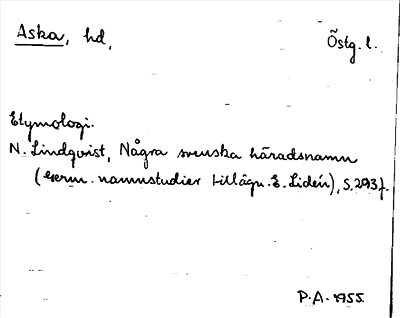 Aska, hd, Östg. l.
Etymologi.
N. Lindqvist, Några svenska häradsnamn
(Germ. namnstudier tillägn. E. Lidén), S. 293 f.
P.A. 1955.